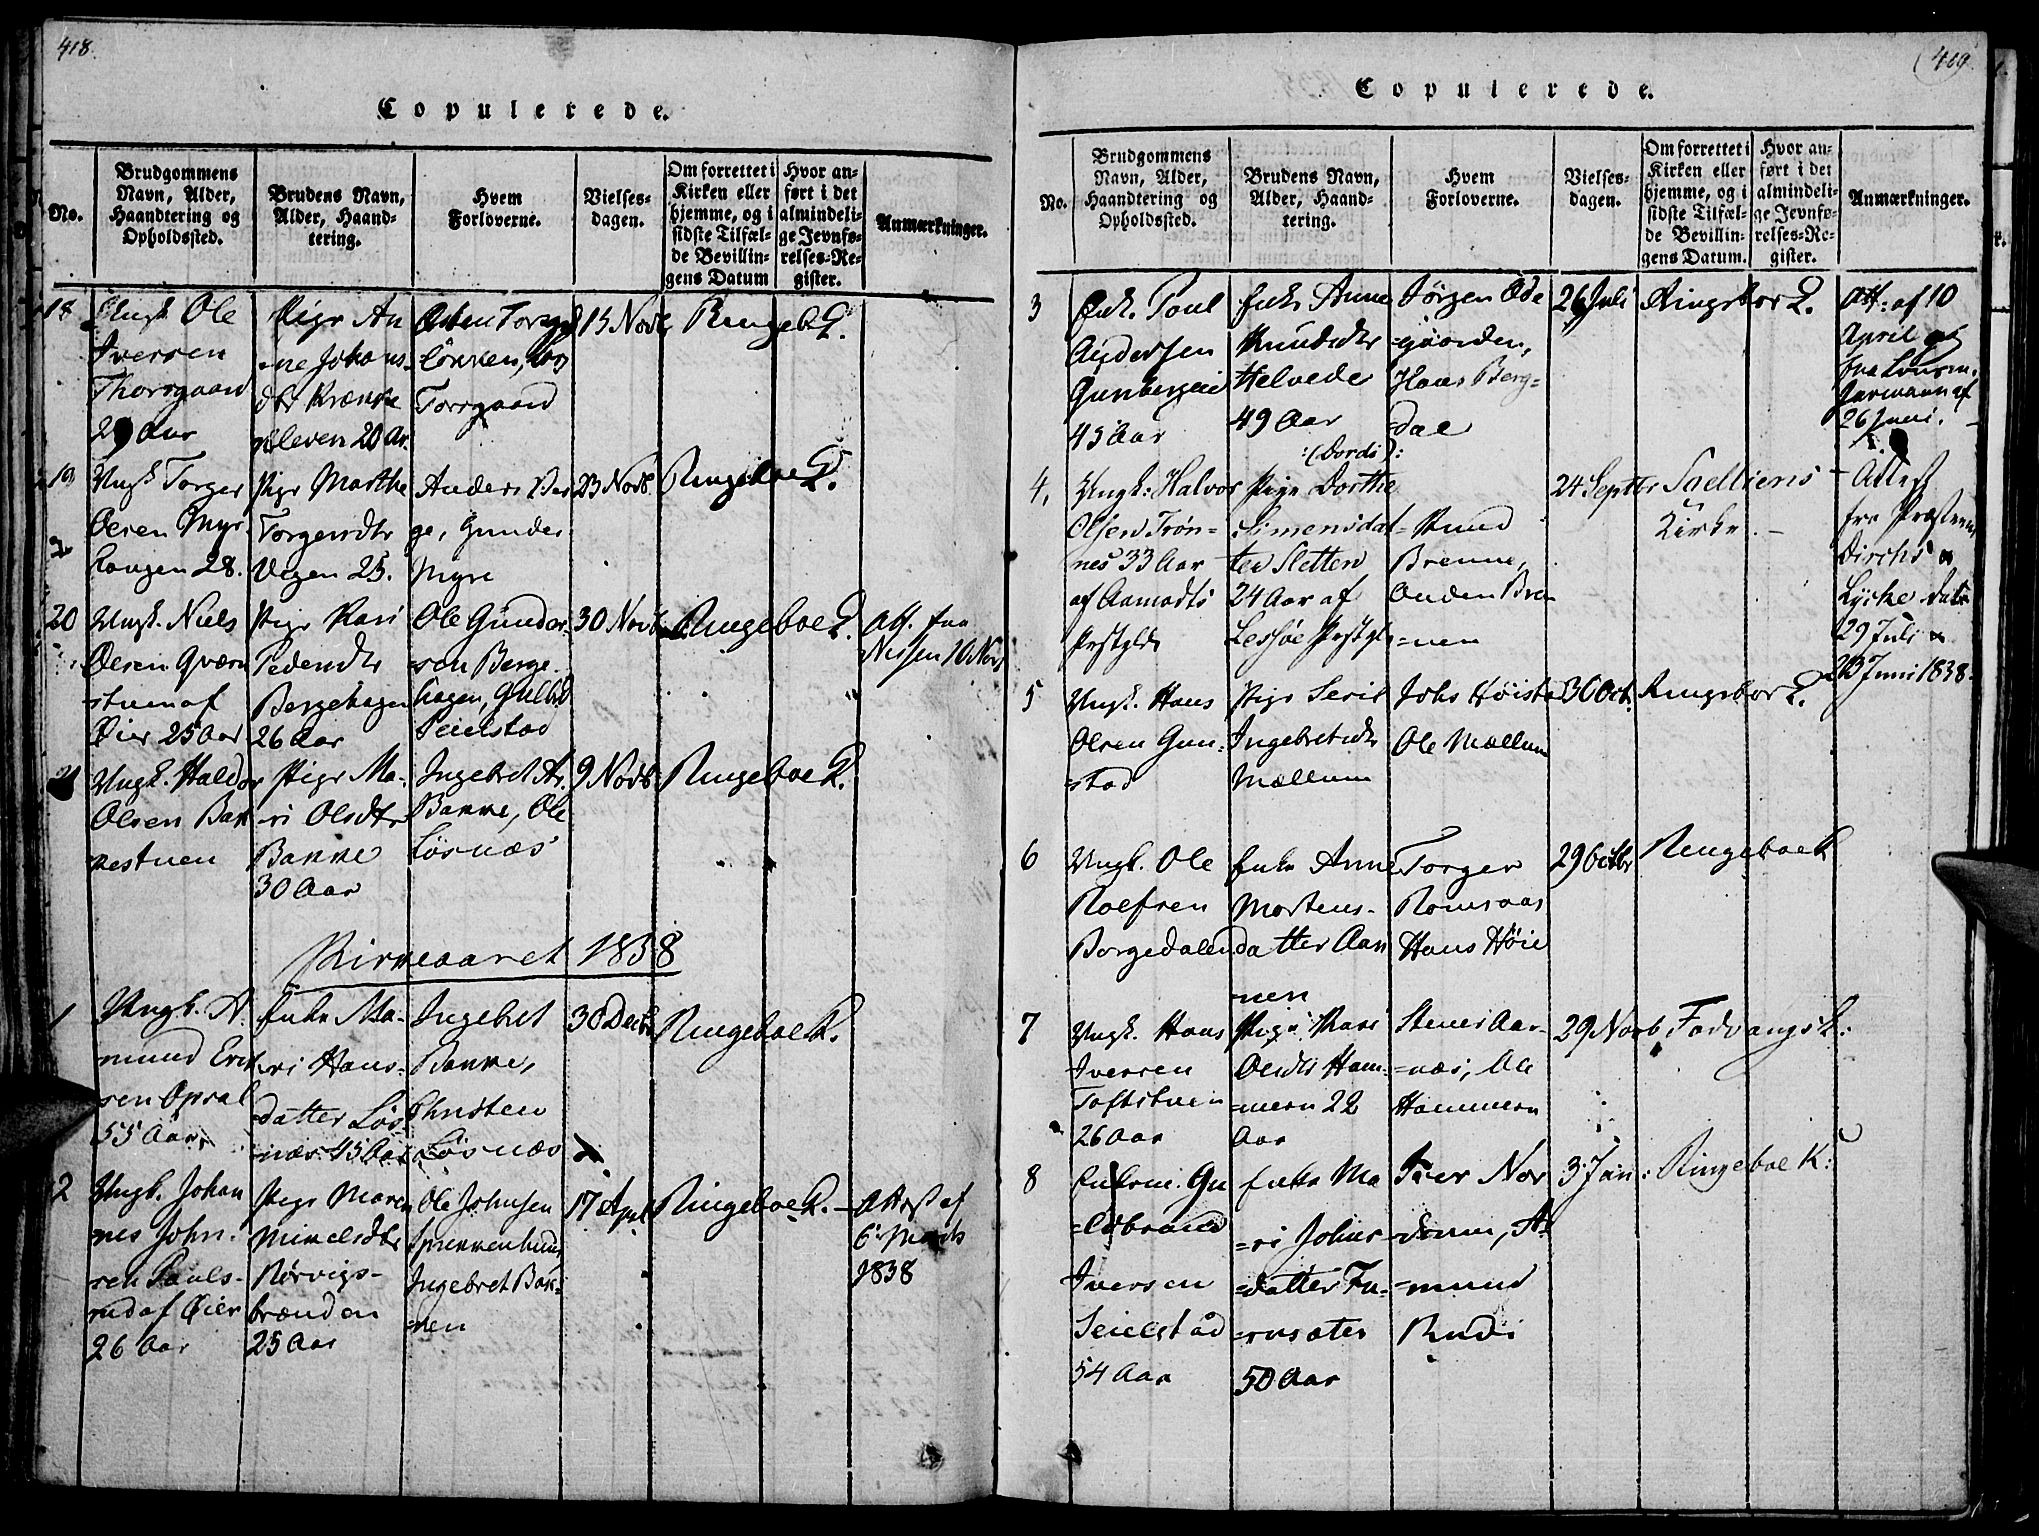 418.
Copulerede.
No.
Brudgommens
Navn, Alder,
Haandtering og
Opholdssted.
Brudens Navn,
Alder, Haand-
tering.
Hvem
Forloverne.
Vielses-
dagen.
Om forrettet i
Kirken eller
hjemme, og i
sidste Tilfæl-
de Bevillin-
gens Datum
Hvor an-
ført i det
almindeli-
ge Jevnfø-
relses-Re-
gister.
Anmærkninger.
18
Ungk Ole
Iversen
Thorsgaard
29 Aar
Pige An
ne Johans-
dtr
kleven 20 Ar
Torsgaard
15 Novb
Ringeb K.
19
Ungk Torger
Olsen Myr
hougen 28.
Pige Marthe
Torgersdtr
Vegen 25.
Anders Ber
ge, Gunder
Myre
23 Novb.
Ringeboe K.
20
Ungk. Niels
Olsen Qværn
stuen af
Øier 25 Aar
Pige Kari
Pedersdtr
Bergehagen
26 Aar
Ole Gunder-
sen Berge-
hagen, Gulb
Seielstad
30 Novb
Ringeboe K.
Att. fra
Nissen 16 Nov
21
Ungk. Haldor
Olsen Bak
kestuen
Pige Ma-
ri Olsdtr
Bakke
30 Aar
Ingebret Ar.
Bakke, Ole
Løsnæs
9 Novb
Ringeboe K.
Kirkeaaret 1838
1
Ungk. A
mund Erik
sen Opsal
55 Aar,
Enke Ma-
ri Hans-
datter Løs-
næs 45 Aar
Ingebret
Bakke,
Christen
Løsnæs
30 Decb
Ringeboe K.
2
Ungk. Johan
nes John-
sen Pauls-
rud af Øier
26 Aar
Pige Maren
Mikelsdtr
Rørvigs-
brænden
25 Aar
Ole Johnsen
Ingebret Bak-
=ken
17 April
Ringeboe K. -
Attest af
6 Marts
1838
409
Copulerede.
No.
Brudgommens
Navn, Alder,
Haandtering og
Opholdssted.
Brudens Navn,
Alder, Haand-
tering.
Hvem
Forloverne.
Vielses-
dagen.
Om forrettet i
Kirken eller
hjemme, og i
sidste Tilfæl-
de Bevillin-
gens Datum.
Hvor an-
ført i det
almindeli-
ge Jevnfø-
relses-Re-
gister.
Anmærkninger.
3
Enk. Poul
Andersen
45 Aar
Enke Anne
Knudsdtr
Helvede
49 Aar
Jørgen Øde
=gaarden,
Hans Berg=
=dal
26 Juli
Ringeboe K.
Att: af 10
April og
26 Juni.
4,
Ungk: Halvor
Olsen Trøn-
nes 33 Aar
af Aamodts
Prstgld
:(Dordi):
Pige Dorthe
Simensdat-
ter Sletten
24 Aar af
Lessøe Prstgld
Knud
Brenne,
Anden Bren
=nen
24 Septbr
Kirke. -
- Attest
fra Præsterne
Dircks og
Lycke dat.
29 Juli og
23 Juni 1838.
5
Ungk. Hans
Olsen Gun-
=stad
Pige Seris
Ingebretsdtr
Mællum
Johs Høista
Ole Mællum
30 Oct.
Ringeboe K.
6
Ungk. Ole
Rolfsen
Borgedalen
Enke Anne
Mortens-
datter Aan
nen
Torger
Romsaas
Hans Høie
29 Octbr
Ringeboe K
7
Ungk. Hans
Iversen
Toftstuen
26 Aar
Pige Kari
Olsdtr Ham-
=mern 22
Aar
Stener Aar-
=næs, Ole
Hammern
29 Novb
Fodvangs K:
8
Enkem. Gu
=lbrand
Iversen
Seielstad
54 Aar
Enke Ma
=ri Johns-
=datter Fu-
=rusæter
50 Aar
Iver Nor
=mund
Rudi
3 Jan:
Ringeboe K: